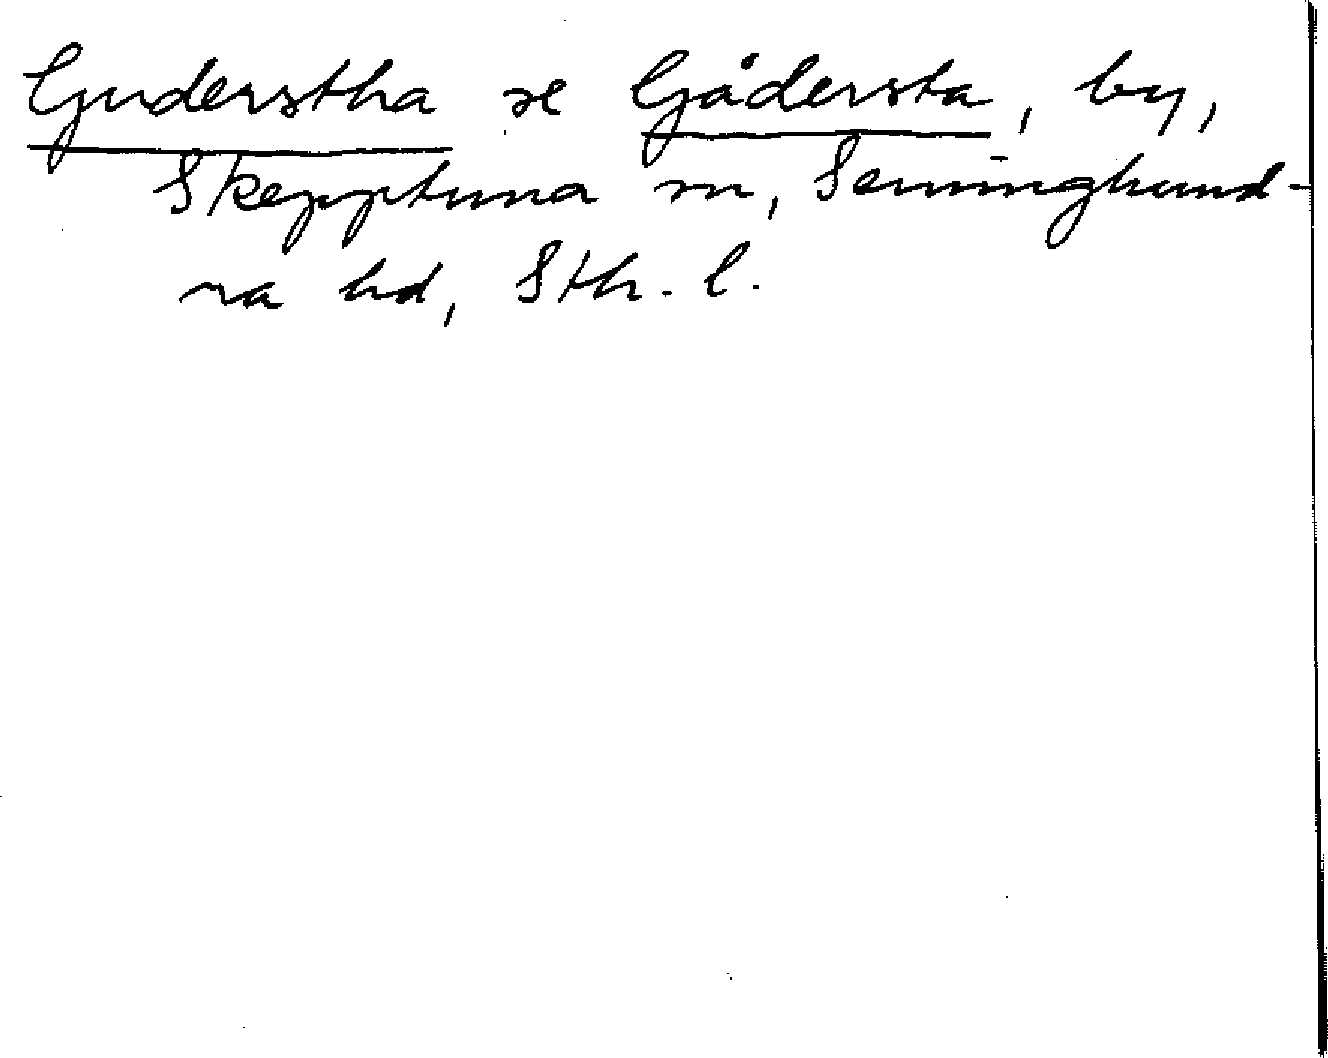 Guderstha se Gådersta, by,
Skepptuna sn, Seminghund-
ra hd, Sth. l.